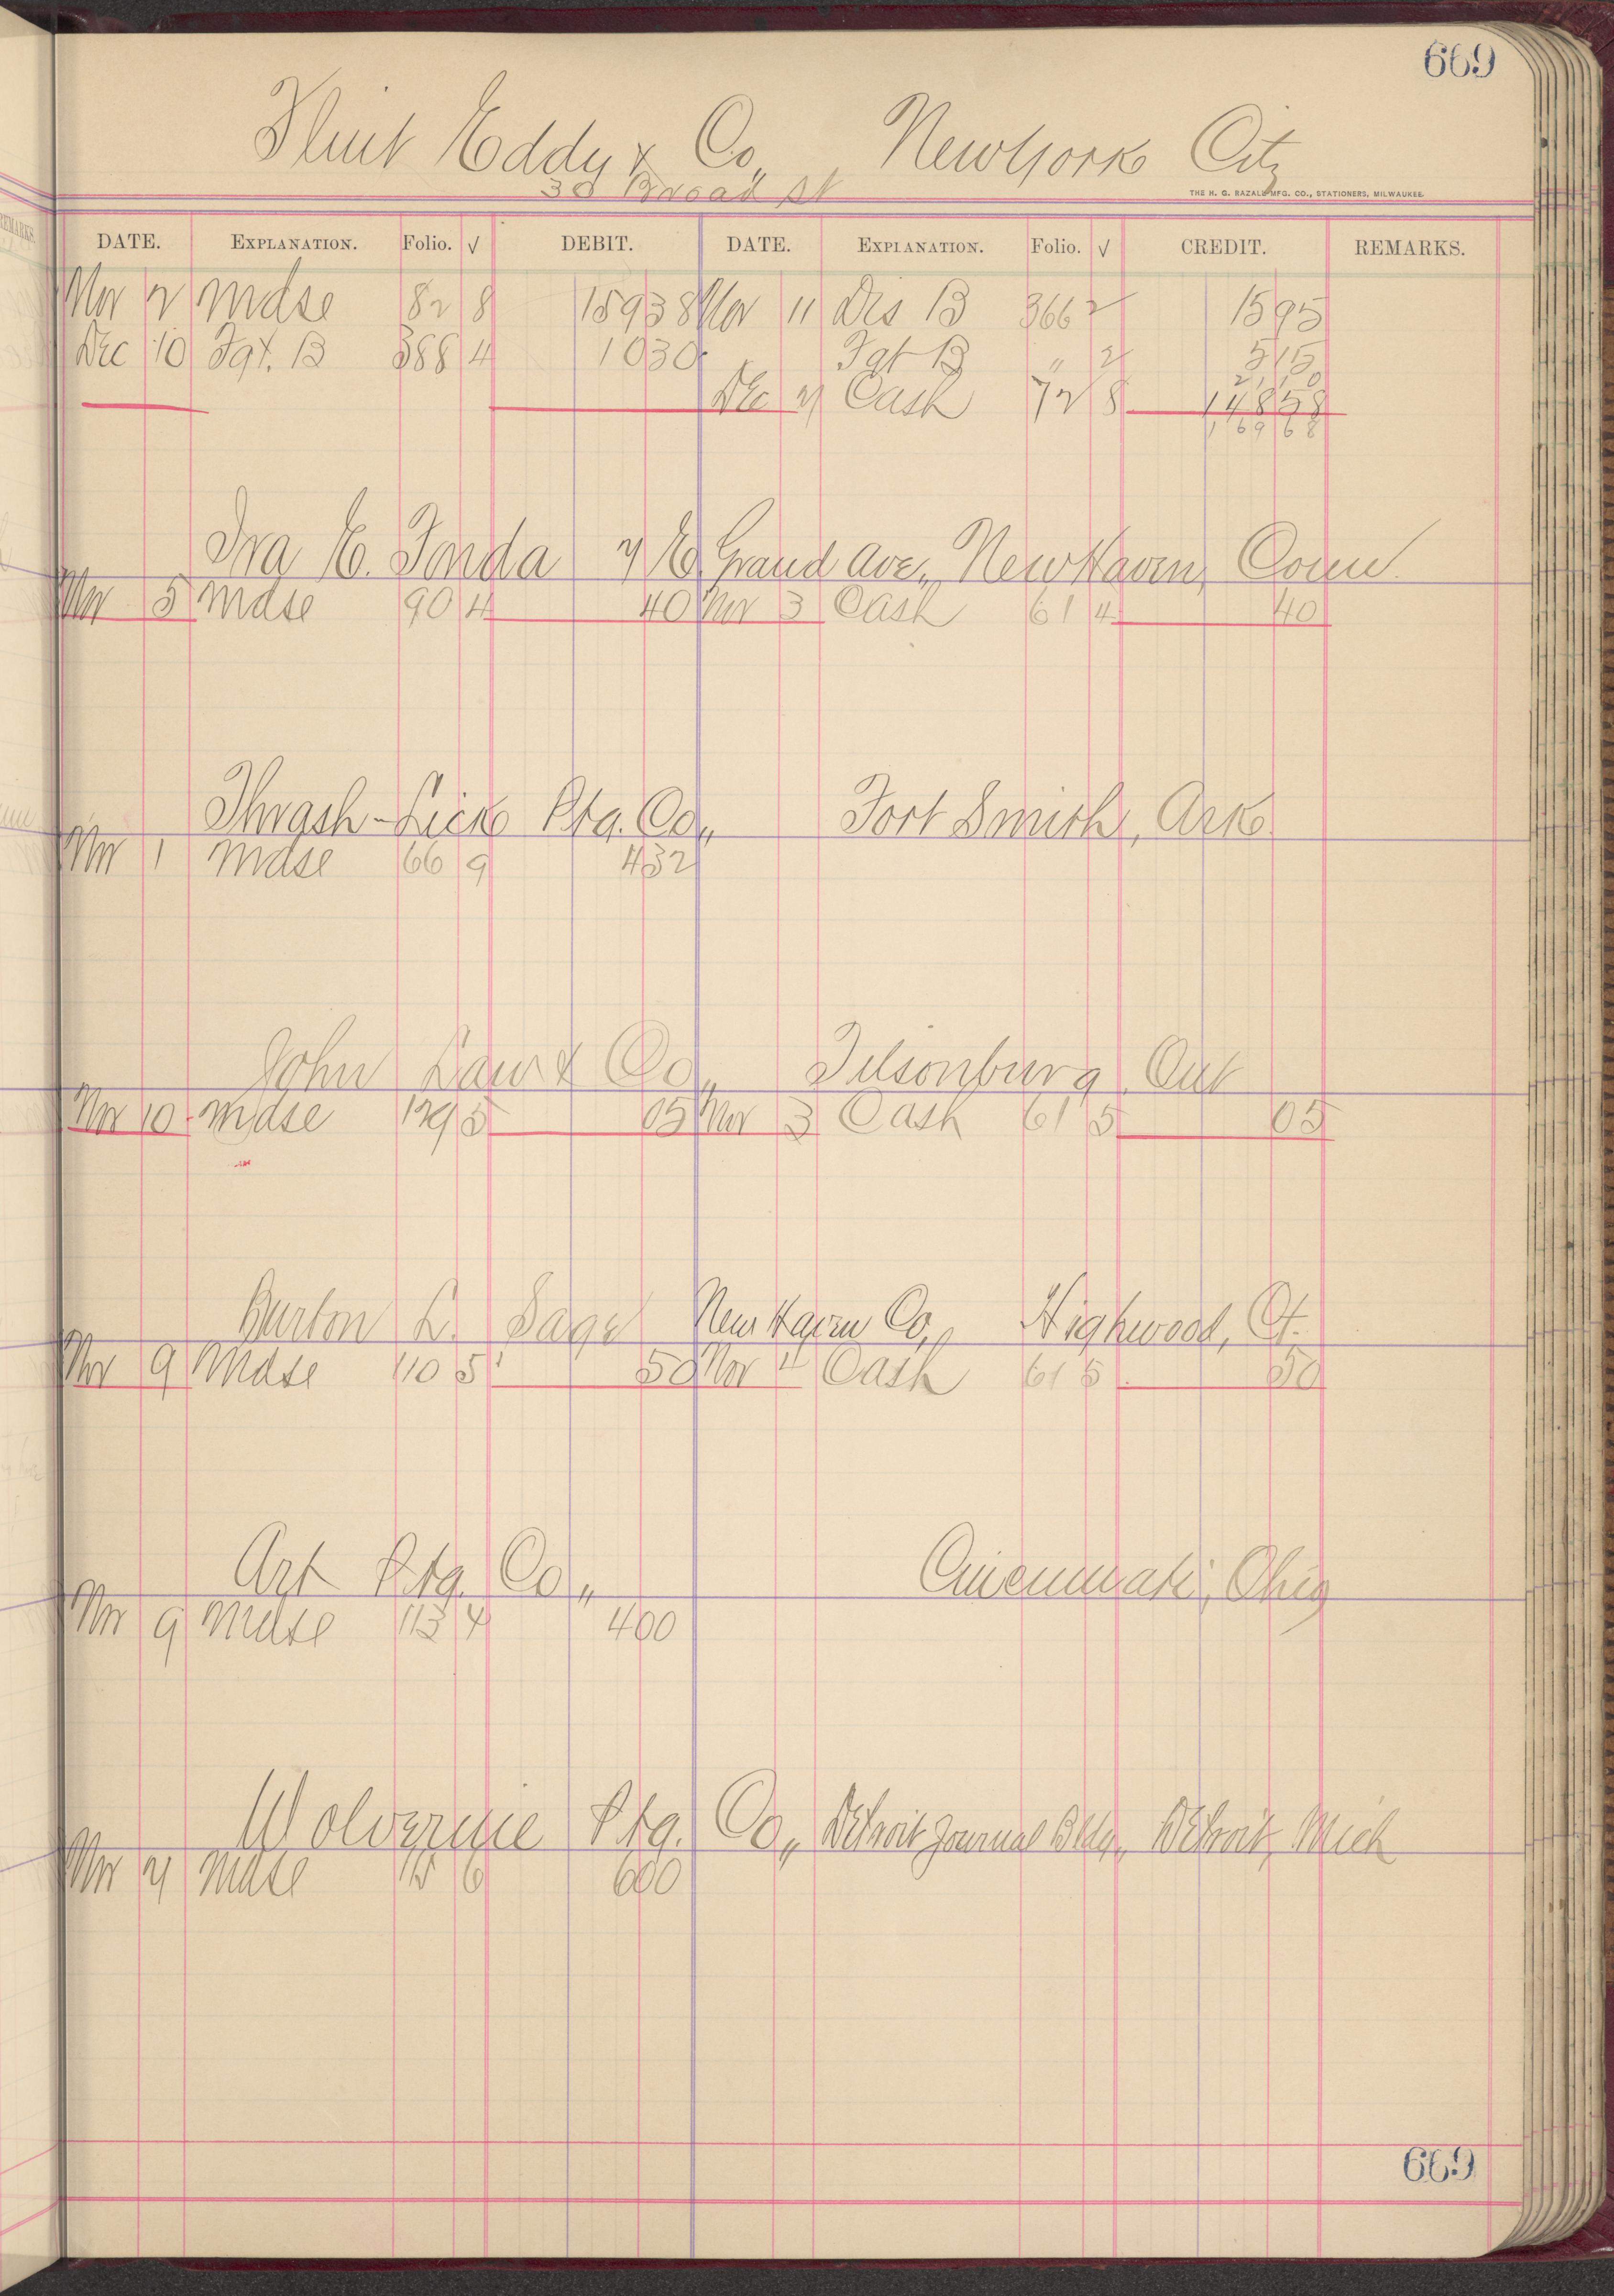 669
Flint Eddy & Co., New York City
30 Broad St
THE H. G. RAZALL MFG. CO., STATIONERS, MILWAUKEE.
DATE. EXPLANATION. Folio. √ DEBIT. DATE. EXPLANATION. Folio. √ CREDIT. REMARKS.
Nov 2 Mdse 82 8 159 38 Nov 11 Dis B 366 2 15 95
Dec 10 Fgt. B 388 4 10 30 Fgt B " 2 5 15
21 10
Dec 21 Cash 72 8 148 58
169 68
Ira E. Fonda 7 E. Grand Ave., New Haven, Conn.
Nov 5 Mdse 90 4 40 Nov 3 Cash 61 4 40
Thrash-Lick Ptg. Co., Fort Smith, Ark.
Nov 1 Mdse 66 9 4 32
John Law & Co., Tilsonburg, Ont
Nov 10 Mdse 129 5 05 Nov 3 Cash 61 5 05
Burton L. Sage New Haven Co., Highwood, Ct.
Nov 9 Mdse 110 5 50 Nov 4 Cash 61 5 50
Art Ptg. Co., Cincinnati, Ohio
Nov 9 Mdse 113 4 4 00
Wolverine Ptg. Co., Detroit Journal Bldg., Detroit, Mich
Nov Mdse 6 6 00
669